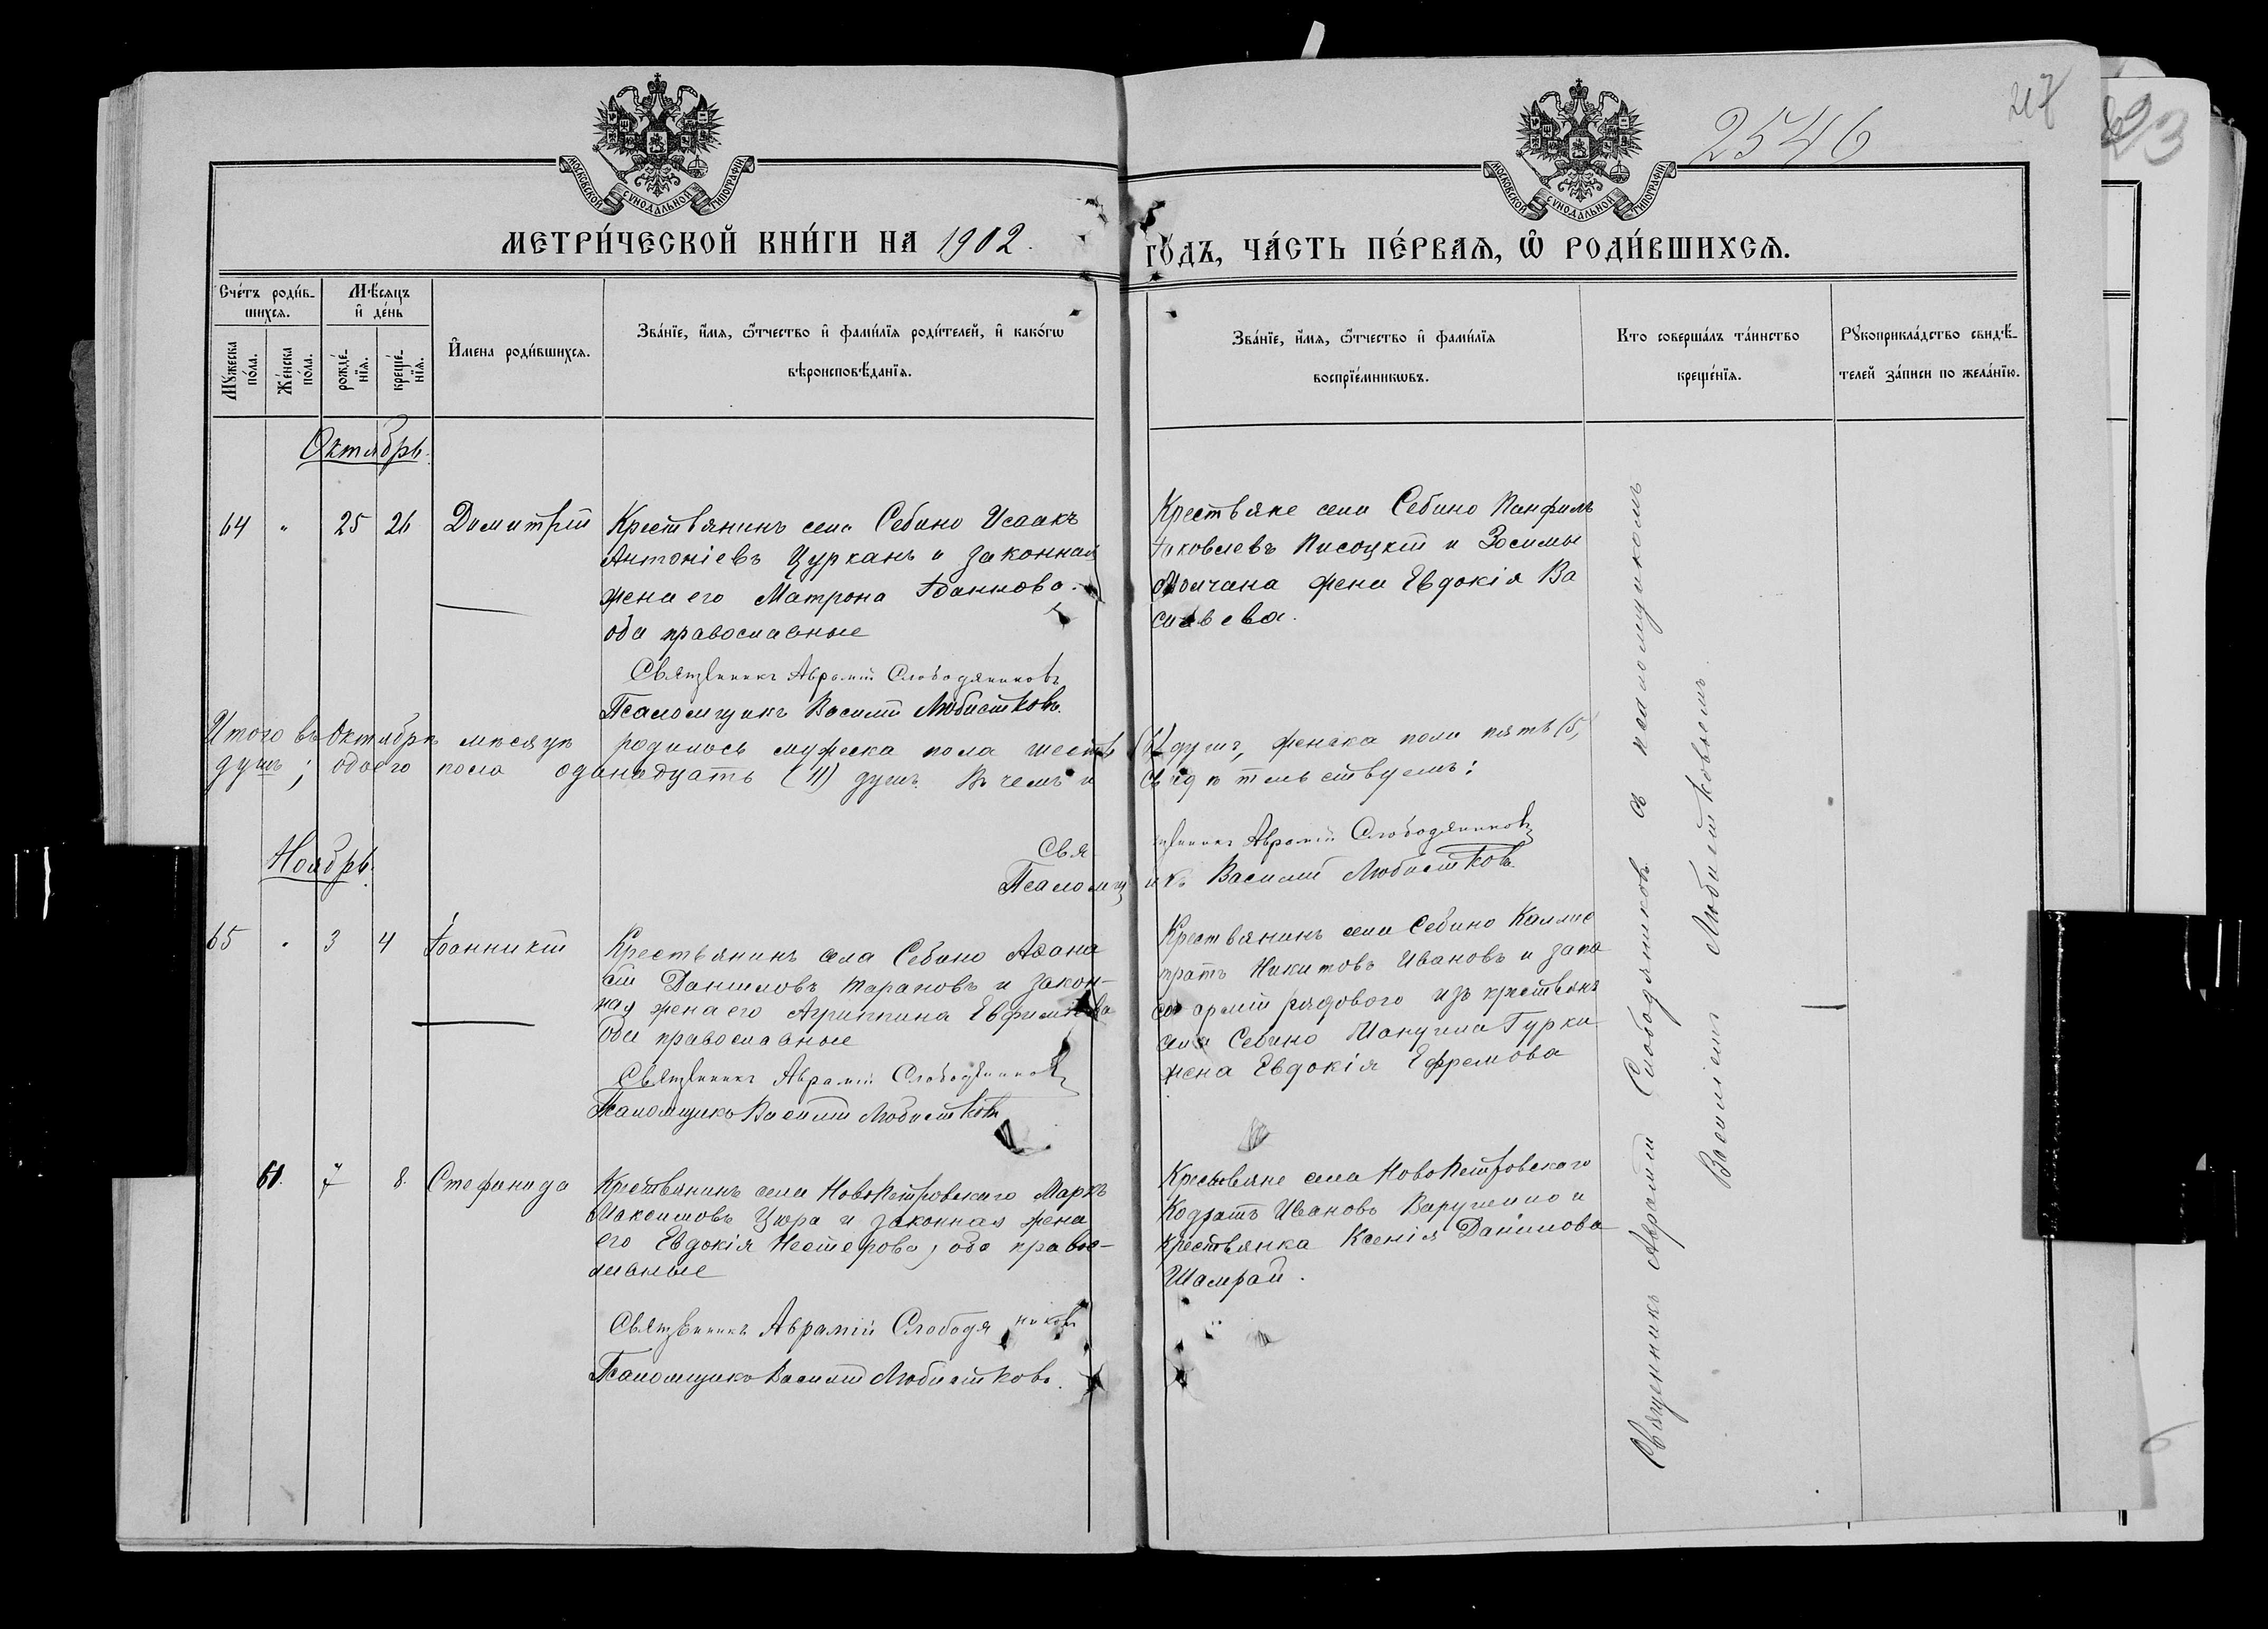 217
23
2546
МОСКОВСКОЙ СУНОДАЛЬНОЙ ТИПОГРАФІИ
МОСКОВСКОЙ СУНОДАЛЬНОЙ ТИПОГРАФІИ
МЕТРИ́ЧЕСКОЙ КНИ́ГИ НА 1902.
ГО́ДЪ, ЧА́СТЬ ПЕ́РВАЯ, Ѡ҆ РОДИ́ВШИХСЯ.
Сче́тъ роди́в-
шихся.
Мꙋ́жеска по́ла.
Же́нска по́ла.
Мѣ́сяцъ
и҆ де́нь
рожде́-
нїя.
креще́-
нїя.
И҆мена роди́вшихся.
Зва́нїе, и҆́мя, ѻ҆́тчество и҆ фами́лїя роди́телей, и҆ како́гѡ
вѣроисповѣ́данїя.
Зва́нїе, и҆́мя, ѻ҆́тчество и҆ фами́лїя
воспрїе́мникѡвъ.
Кто соверша́лъ та́инство
креще́нїя.
Рꙋкоприкла́дство свидѣ́-
телей за́писи по жела́нїю.
Октябрь.
64 " 25 26 Димитрій
Крестьянинъ села Себино Исаакъ
Антоніевъ Цурканъ и законная
жена его Матрона Іоаннова.
оба православные
Священникъ Аврамій Слободяниковъ
Псаломщикъ Василій Любистковъ.
Крестьяне села Себино Панфилъ
Іаковлевъ Писоцкій и Зосимы
Молчана жена Евдокія Ва
сильева.
Итого въ Октябрѣ мѣсяцѣ родилось мужеска пола шесть (6) душъ, женска пола пять (5)
душъ; обоего пола одинадцать (11) душъ. Въ чемъ и свидѣтельствуемъ:
Священникъ Аврамій Слободяниковъ
Псаломщикъ Василій Любистковъ.
Ноябрь.
65 " 3 4 Іоанникій
Крестьянинъ села Себино Аѳана
сій Даниловъ Тарановъ и закон-
ная жена его Агриппина Евфимiева
оба православные
Священникъ Аврамій Слободяниковъ
Псаломщикъ Василій Любистковъ
Крестьянинъ села Себино Каллис
тратъ Никитовъ Ивановъ и запа
са арміи рядового изъ крестьянъ
села Себино Мануила Гурки
жена Евдокія Ефремова
61. 7 8. Стефанида
Крестьянинъ села НовоПетровскаго Маркъ
Максимовъ Цюра и законная жена
его Евдокія Нестерова, оба правос-
лавные
Священникъ Аврамій Слободяниковъ
Псаломщикъ Василій Любистковъ.
Крестьяне села НовоПетровскаго
Кодратъ Ивановъ и
крестьянка Ксенія Данилова
Шамрай.
Священникъ Аврамій Слободяниковъ съ псаломщикомъ
Василіемъ Любистковымъ